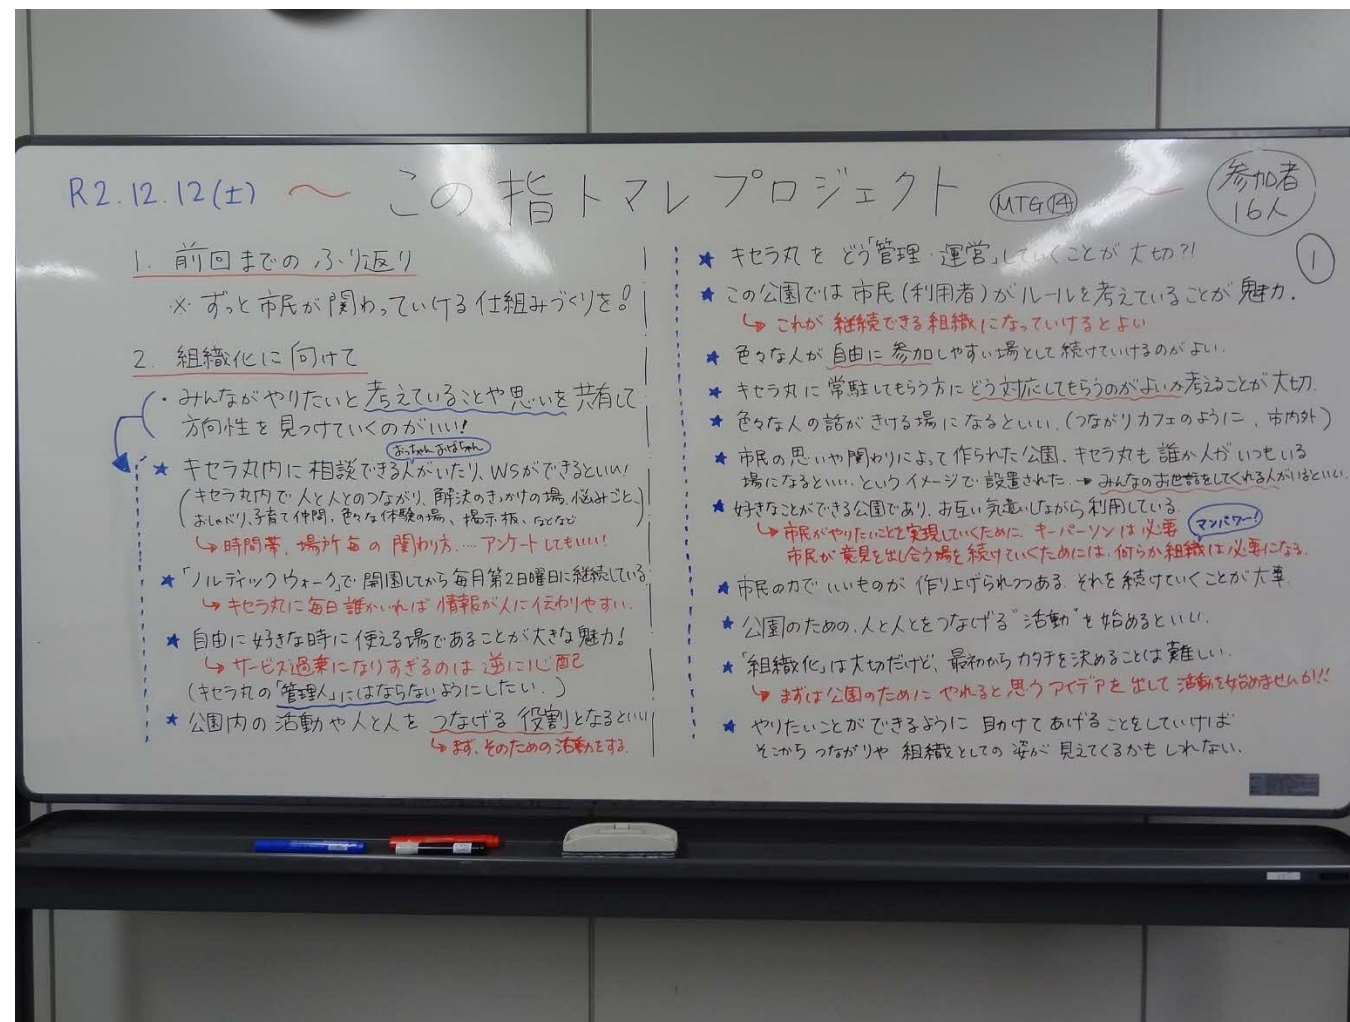 R2.12.12(土) 〜 この指トマレプロジェクト MTG⑭ 〜
参加者
16人
①
1. 前回までのふり返り
※ ずっと市民が関わっていける仕組みづくりを!
2. 組織化に向けて
・みんながやりたいと考えていることや思いを共有して
方向性を見つけていくのがいい!
おっちゃん、おばちゃん
★ キセラ丸内に相談できる人がいたり、WSができるといい!
(キセラ丸内で人と人とのつながり、解決のきっかけの場、悩みごと、
おしゃべり、子育て仲間、色々な体験の場、掲示板、などなど)
↳ 時間帯、場所毎の関わり方....アンケートしてもいい!
★「ノルディックウォーク」で開園してから毎月第2日曜日に継続している
↳ キセラ丸に毎日誰かいれば情報が人に伝わりやすい.
★ 自由に好きな時に使える場であることが大きな魅力!
↳ サービス過乗になりすぎるのは逆に心配
(キセラ丸の「管理人」にはならないようにしたい.)
★ 公園内の活動や人と人をつなげる役割となるといい
↳ まず、そのための活動をする.
★ キセラ丸をどう「管理・運営」していくことが大切?!
★ この公園では市民(利用者)がルールを考えていることが魅力.
↳ これが継続できる組織になっていけるとよい
★ 色々な人が自由に参加しやすい場として続けていけるのがよい.
★ キセラ丸に常駐してもらう方にどう対応してもらうのがよいか考えることが大切.
★ 色々な人の話がきける場になるといい.(つながりカフェのように、市内外)
★ 市民の思いや関わりによって作られた公園、キセラ丸も誰か人がいつもいる
場になるといい、というイメージで設置された.→みんなのお世話をしてくれる人がいるといい
★ 好きなことができる公園であり、お互い気遣いしながら利用している.
↳ 市民がやりたいことを実現していくために、キーパーソンは必要 マンパワー!
市民が意見を出し合う場を続けていくためには、何らか組織は必要になる.
★ 市民の力でいいものが作り上げられつつある.それを続けていくことが大事.
★ 公園のための、人と人とをつなげる"活動"を始めるといい.
★「組織化」は大切だけど、最初からカタチを決めることは難しい.
↳ まずは公園のためにやれると思うアイデアを出して活動を始めませんか!!
★ やりたいことができるように助けてあげることをしていけば
そこからつながりや組織としての姿が見えてくるかもしれない.